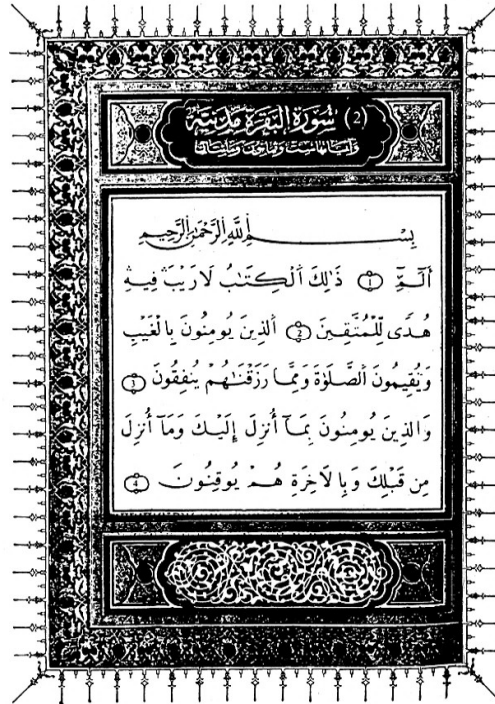 (2) سُورَةُ البَقَرَةِ مَدَنِيَّة
وآياتها ست وثمانون ومئتان
بِسْمِ اِللَّهِ اِلرَّحْمَٰنِ اِلرَّحِيمِ
أَلَٓمِّٓ (1) ذَٰلِكَ اَلْكِتَٰبُ لَا رَيْبَ فِيهِ
هُدًى لِّلْمُتَّقِينَ (2) اَلذِينَ يُومِنُونَ بِالْغَيْبِ
وَيُقِيمُونَ اَلصَّلَوٰةَ وَمِمَّا رَزَقْنَٰهُمْ يُنفِقُونَ (3)
وَالذِينَ يُومِنُونَ بِمَآ أُنزِلَ إِلَيْكَ وَمَآ أُنزِلَ
مِن قَبْلِكَ وَبِالَاخِرَةِ هُمْ يُوقِنُونَ (4)